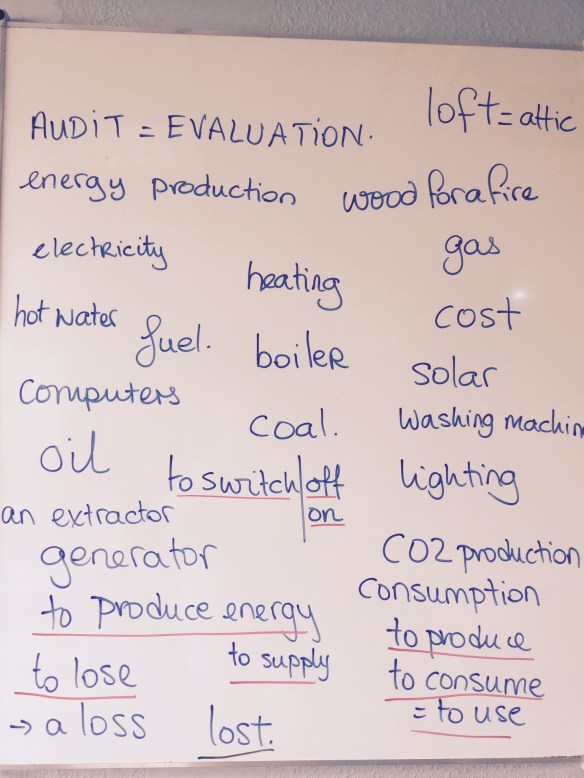 loft = attic
AUDIT = EVALUATION.
energy production
wood for a fire
electricity
gas
heating
hot water
fuel.
cost
boiler
solar
computers
coal.
washing machin
oil
to switch off
on
lighting
an extractor
generator
CO2 production
consumption
to produce energy
to produce
to lose
to supply
to consume
= to use
→ a loss
lost.